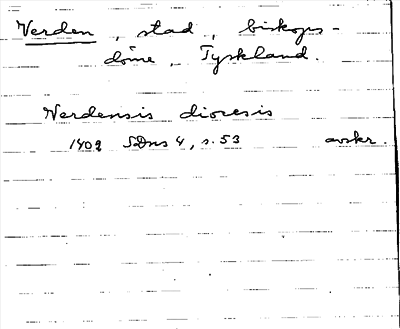 Verden, stad, biskops-
döme, Tyskland.
Verdensis diocesis
1402 SDns 4, s. 53 avskr.